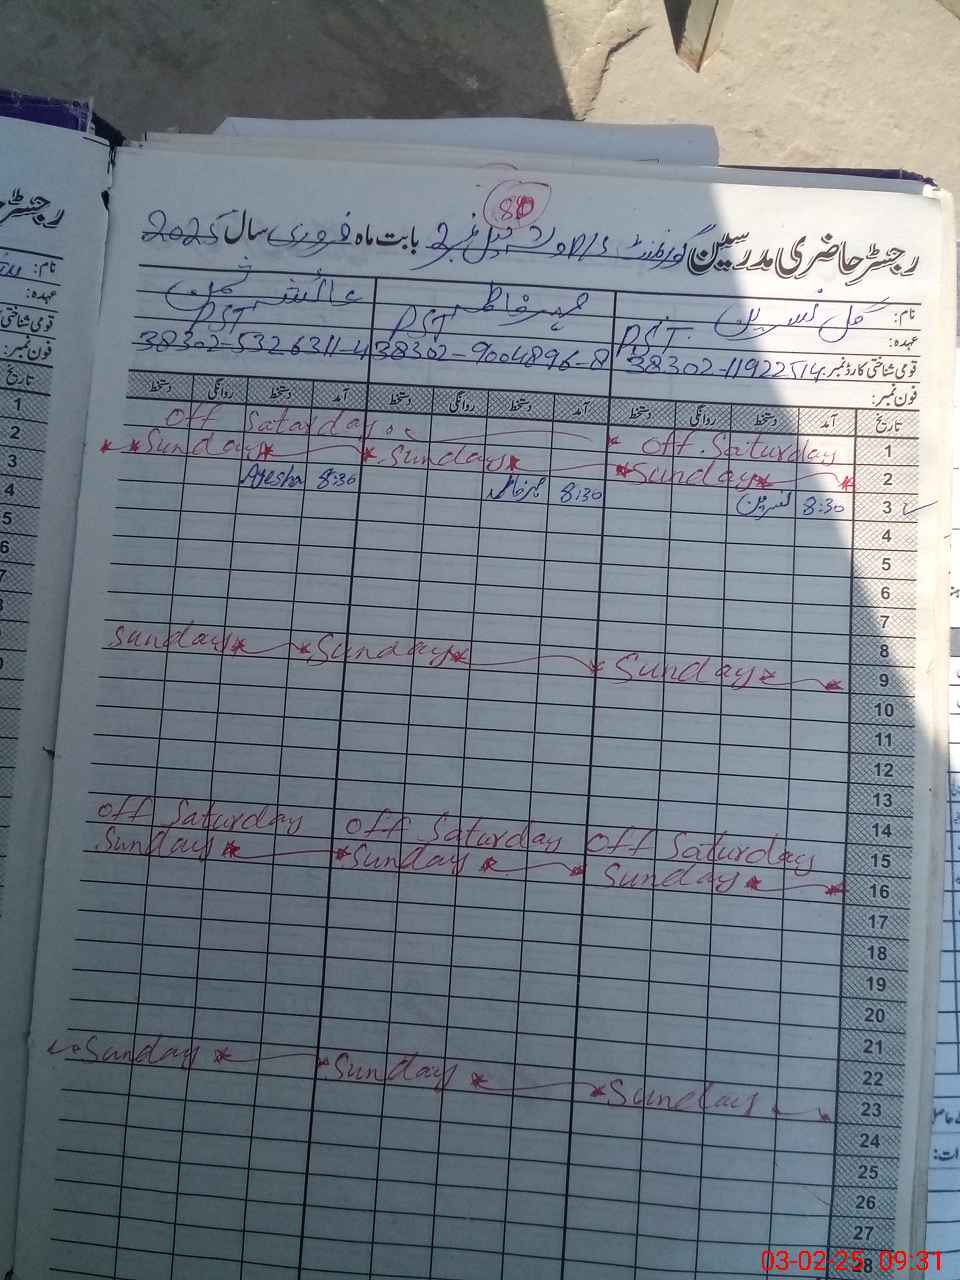 80
رجسٹر حاضری مدرسین گورنمنٹ بابت ماہ فروری سال 2025
نام: گل نسرین مہر فاطمہ عائشہ
عہدہ: PST PST PST
قومی شناختی کارڈ نمبر: 38302-1192251-4 38302-9004896-8 38302-5326311-4
فون نمبر:
تاریخ آمد دستخط روانگی دستخط آمد دستخط روانگی دستخط آمد دستخط روانگی دستخط
1 off. Saturday off Saturday
2 Sunday Sunday Sunday
3 8:30 نسرین 8:30 مہر فاطمہ 8:30 Ayesha
4
5
6
7
8
9 Sunday Sunday Sunday
10
11
12
13
14
15 off Saturday off Saturday off Saturday
16 Sunday Sunday Sunday
17
18
19
20
21
22
23 Sunday Sunday Sunday
24
25
26
27
28
رجسٹر
نام:
عہدہ:
قومی شناختی
فون نمبر:
تاریخ
1
2
3
4
5
6
03-02-25 09:31